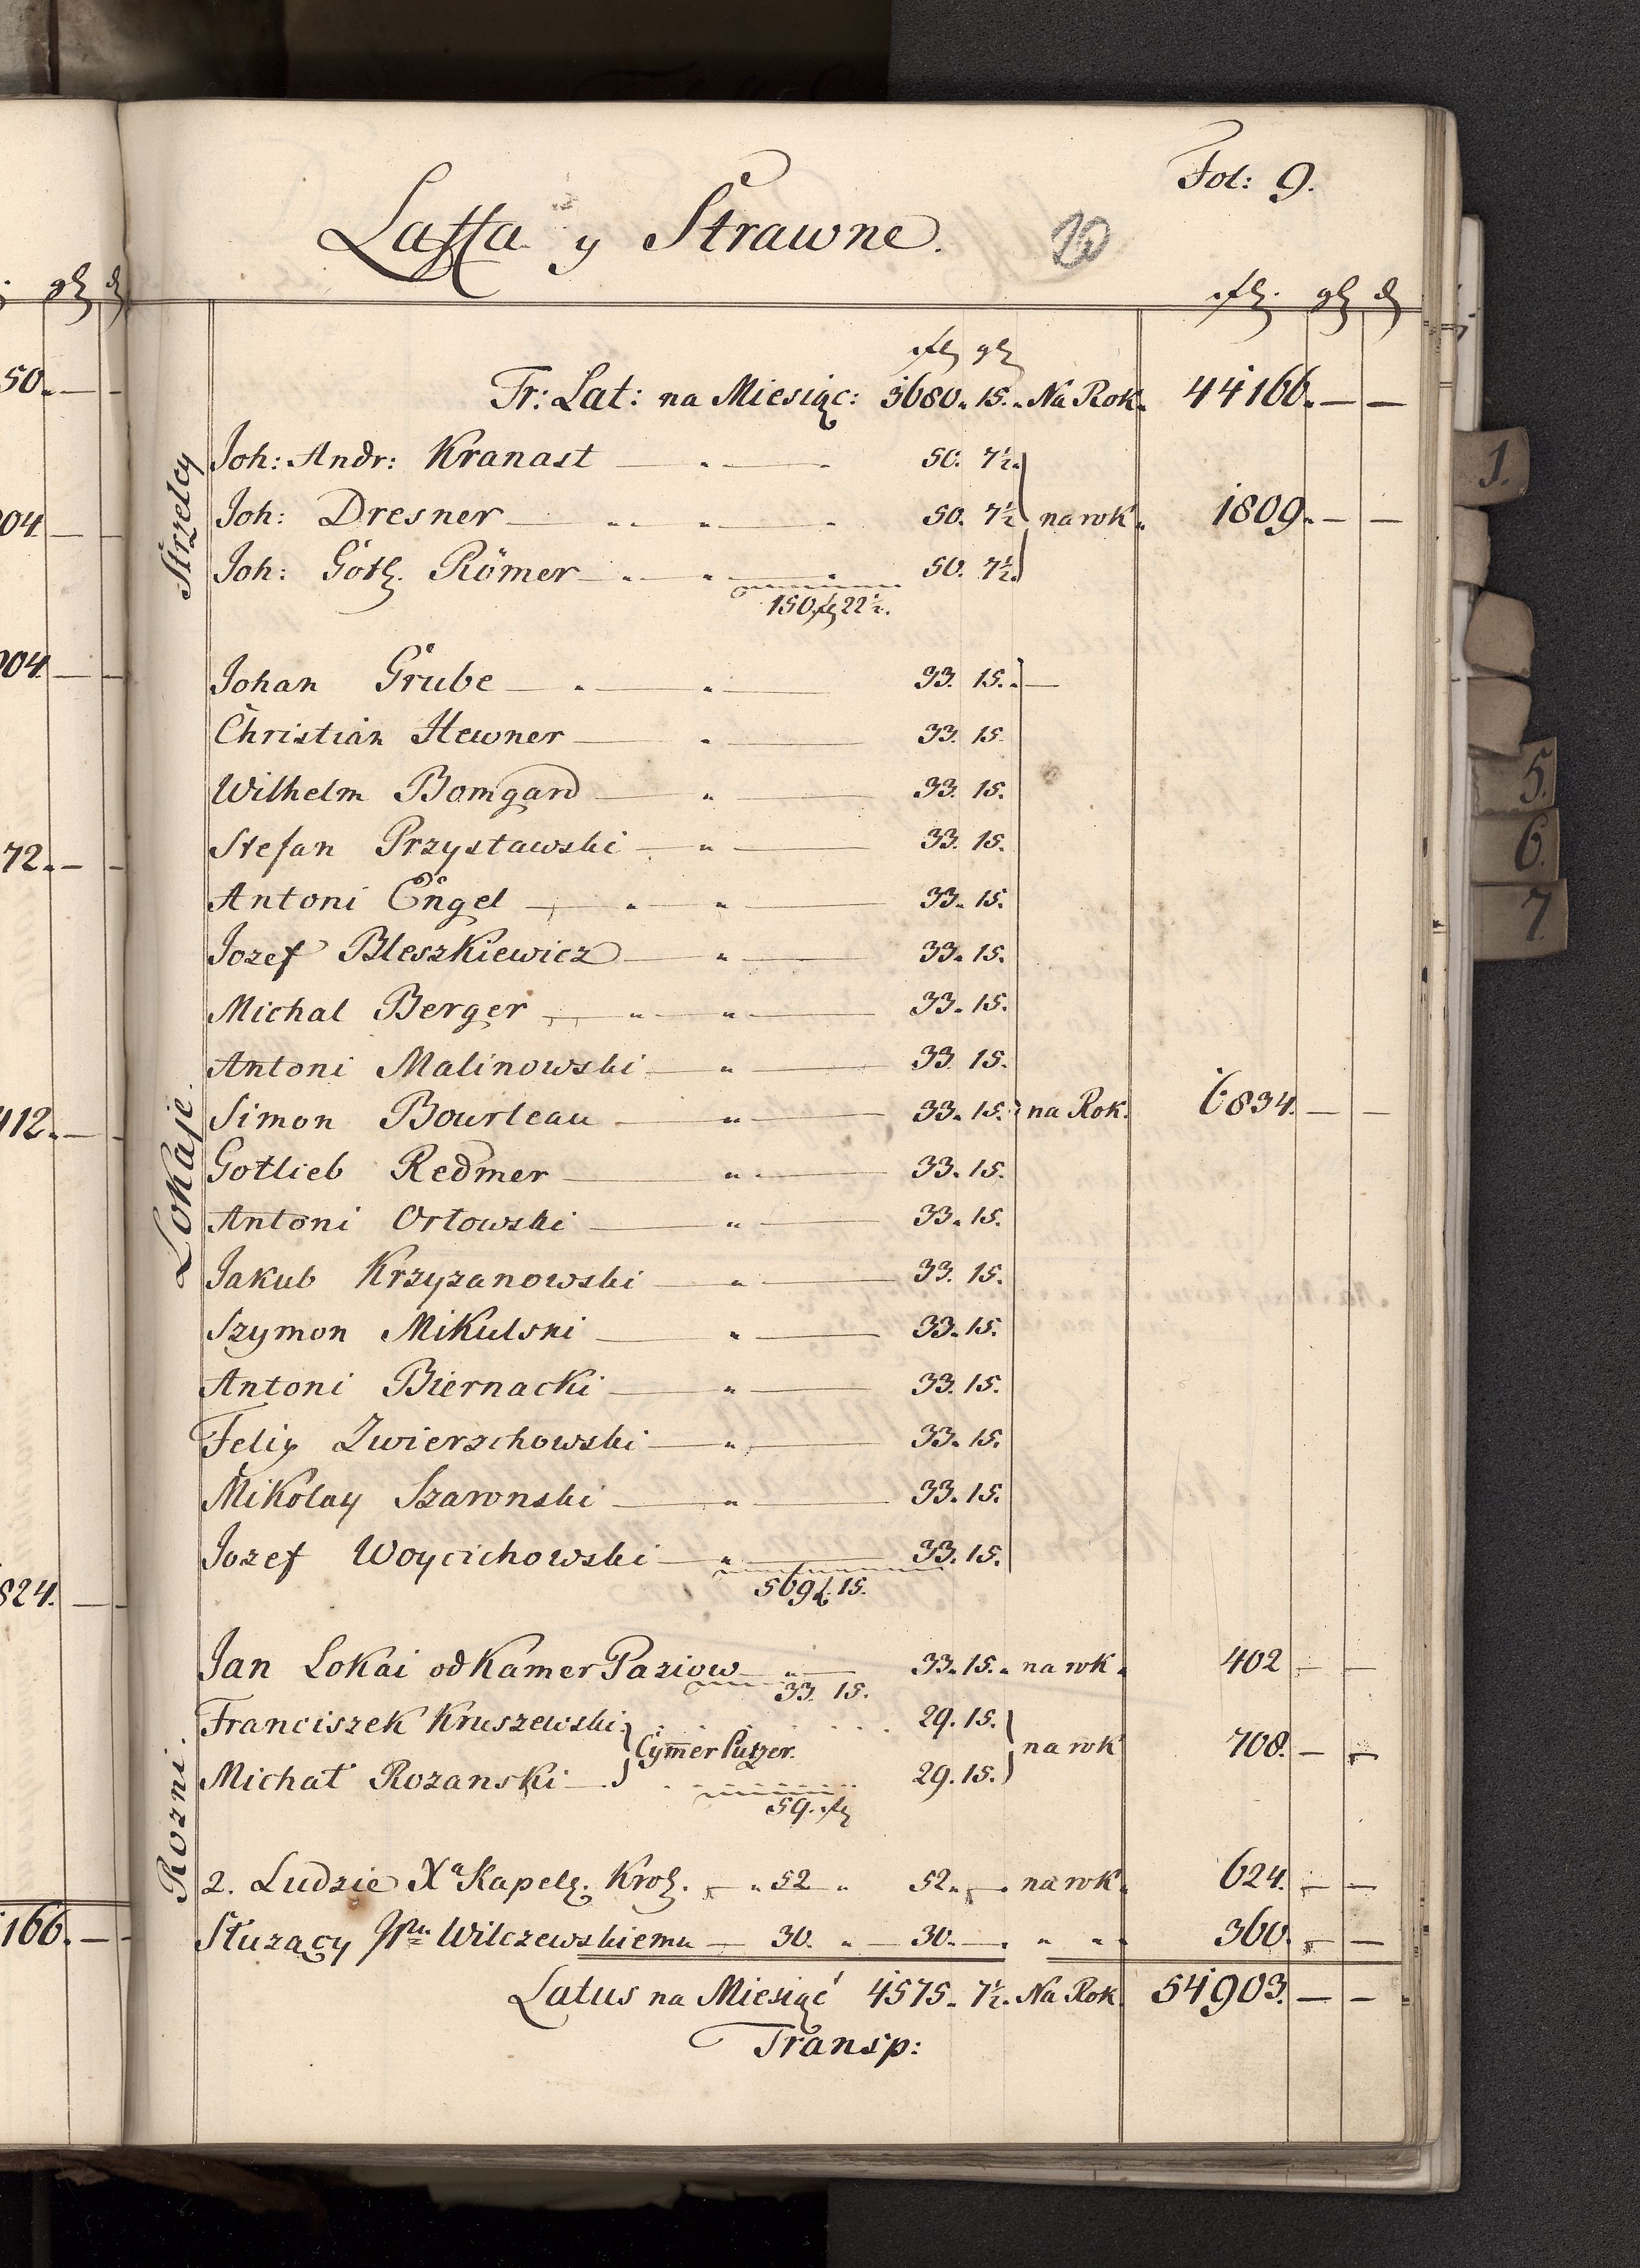 Fol: 9.
Laffa y Strawne.
20
fl. gl d
fl gl
Fr: Lat: na Miesiąc: 3680. 15. Na Rok. 44166. — —
Strzelcy
Joh: Andr: Kranast — . — . 50. 7½.
Joh: Dresner — .. — . — . 50. 7½ na rok. 1809. — —
Joh: Gotl. Römer — . — . — . 50. 7½.
150 fl 22½.
Lokaje.
Johan Grube — . — . — 33. 15. —
Christian Hewner — . — 33. 15.
Wilhelm Bomgard — . — 33. 15.
Stefan Przystawski — " — 33. 15.
Antoni Engel — . — " — 33. 15.
Jozef Bleszkiewicz — " — 33. 15.
Michal Berger — " — " — 33. 15.
Antoni Malinowski — " — 33. 15.
Simon Bourleau — " — 33. 15. na Rok. 6834. — —
Gotlieb Redmer — " — 33. 15.
Antoni Orłowski — " — 33. 15.
Jakub Krzyzanowski — " — 33. 15.
Szymon Mikulski — " — 33. 15.
Antoni Biernacki — " — 33. 15.
Felix Zwierzchowski — " — 33. 15.
Mikolay Szawnski — " — 33. 15.
Jozef Woycichowski — " — 33. 15.
569 f. 15.
Rozni.
Jan Lokai od Kamer Paziow — " — 33. 15. na rok. 402 — —
33. 15.
Franciszek Kruszewski 29. 15.
Cymer Putzer. na rok 708. — —
Michał Rozanski — 29. 15.
59. fl
2. Ludzie Xa Kapel. Krol. — " 52 " 52. — na rok. 624. — —
Służący JPu Wilczewskiemu — 30. " — 30. — " " 360. — —
Latus na Miesiąć 4575. 7½. Na Rok. 54903. — —
Transp:
gl d
50. — —
04 — —
004 — —
72. — —
412. — —
824. — —
166. — —
1.
5.
6.
7.